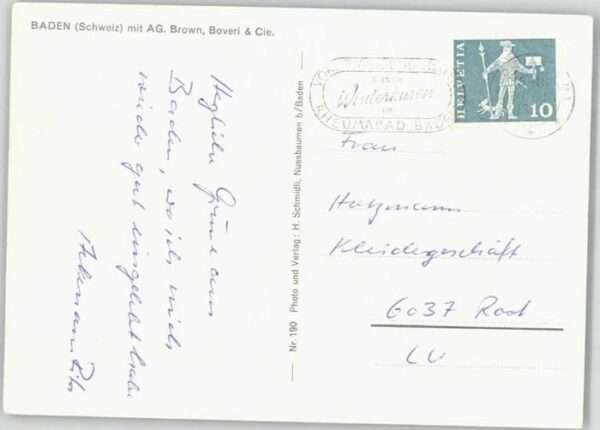 BADEN (Schweiz) mit AG. Brown, Boveri & Cie.
Herzliche Grüsse aus
Baden, wo ich mich
wieder gut eingelebt habe
Nr. 190 Photo und Verlag: H. Schmidli, Nussbaumen b/Baden
Winterkuren
im
RHEUMABAD BADEN
HELVETIA
10
Frau
Holzmann
Kleidergeschäft
6037 Root
LU